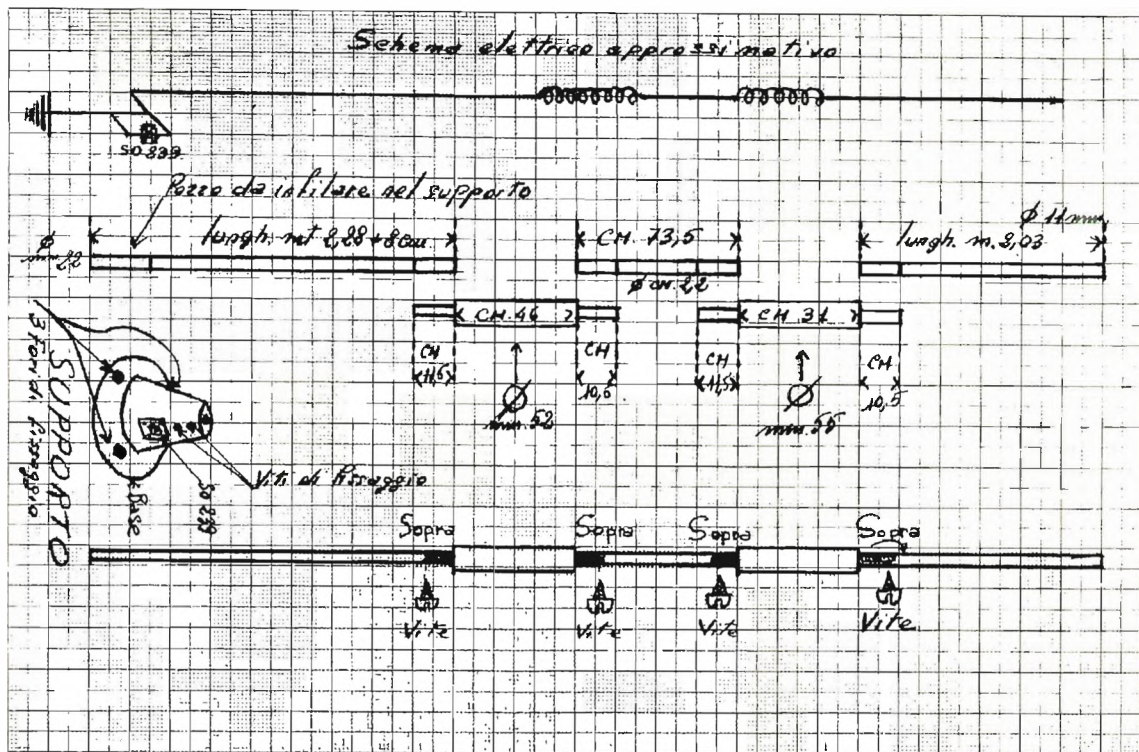 Schema elettrico approssimativo
SO 239
Pezzo da infilare nel supporto
Ø 11 mm
lungh. mt 2,28 + 8 cm
CM. 73,5
lungh. m. 2,03
Ø mm 22
Ø CM. 2,2
CM. 46
CM 31
CM 11,5
CM 10,5
CM 11,5
CM 10,5
Ø mm. 52
Ø mm. 55
3 Fori di fissaggio
SUPPORTO
Base
SO 239
Viti di fissaggio
Sopra
Sopra
Sopra
Sopra
Vite
Vite
Vite
Vite